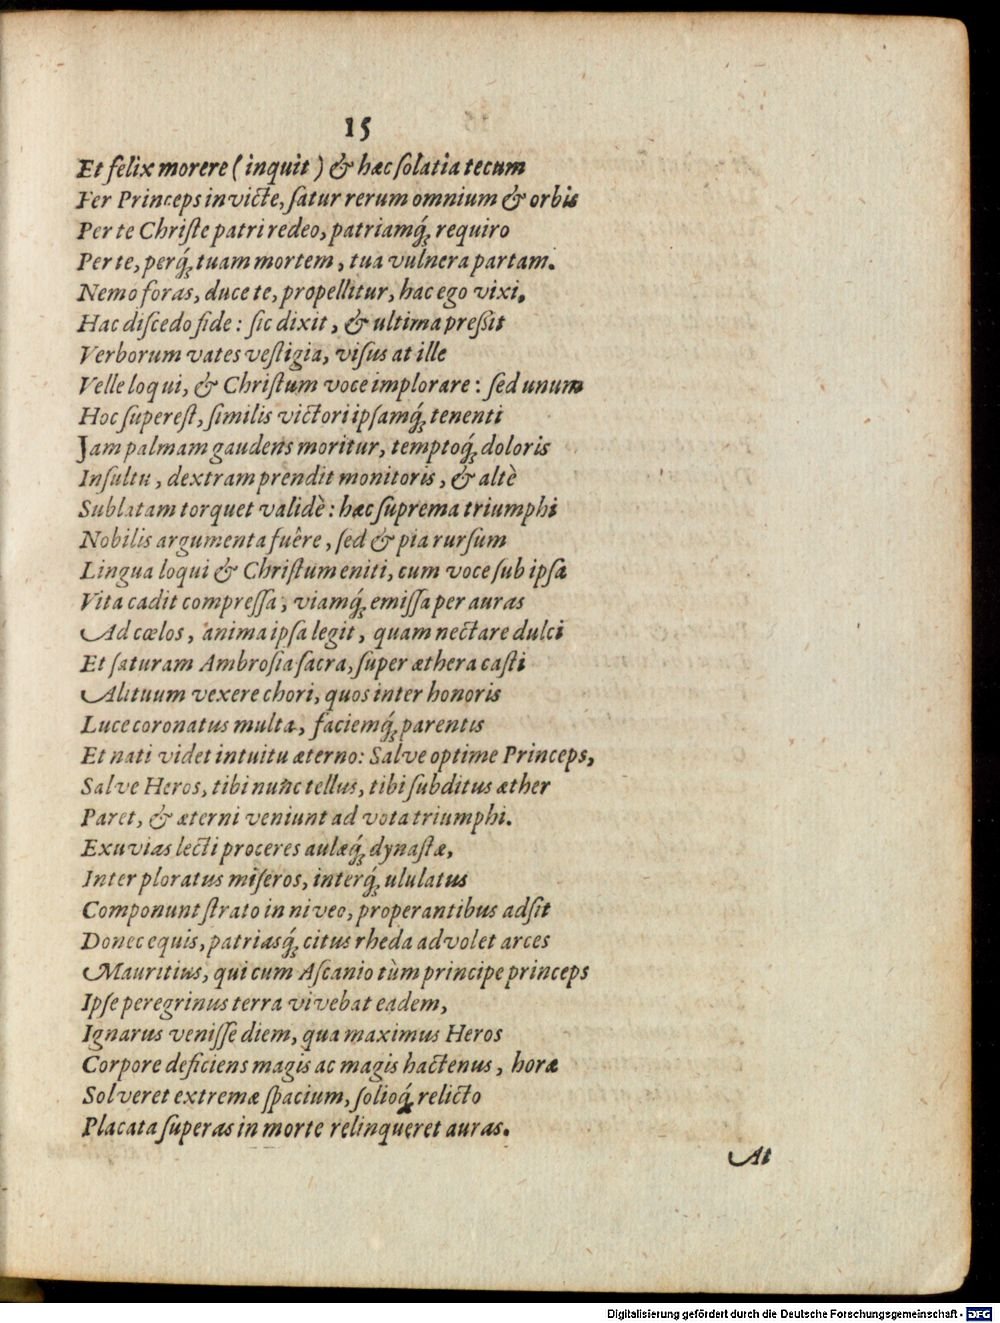 15
Et felix morere (inquit) & hæc ſolatia tecum
Fer Princeps invicte, ſatur rerum omnium & orbis
Per te Chriſte patri redeo, patriamq́ꝫ requiro
Per te, perq́ꝫ tuam mortem, tua vulnera partam.
Nemo foras, duce te, propellitur, hac ego vixi,
Hac diſcedo fide: ſic dixit, & ultima preßit
Verborum vates veſtigia, viſus at ille
Velle loqui, & Chriſtum voce implorare: ſed unum
Hoc ſupereſt, ſimilis victori ipſamq́ꝫ tenenti
Jam palmam gaudens moritur, temptoq́ꝫ doloris
Inſultu, dextram prendit monitoris, & altè
Sublatam torquet validè: hæc ſuprema triumphi
Nobilis argumenta fuêre, ſed & pia rurſum
Lingua loqui & Chriſtum eniti, cum voce ſub ipſa
Vita cadit compreſſa, viamq́ꝫ emiſſa per auras
Ad cœlos, anima ipſa legit, quam nectare dulci
Et ſaturam Ambroſia ſacra, ſuper æthera caſti
Alituum vexere chori, quos inter honoris
Luce coronatus multa, faciemq́ꝫ parentis
Et nati videt intuitu æterno: Salve optime Princeps,
Salve Heros, tibi nunc tellus, tibi ſubditus æther
Paret, & æterni veniunt ad vota triumphi.
Exuvias lecti proceres aulæq́ꝫ dynaſtæ,
Inter ploratus miſeros, interq́ꝫ ululatus
Componunt ſtrato in niveo, properantibus adſit
Donec equis, patriasq́ꝫ citus rheda advolet arces
Mauritius, qui cum Aſcanio tùm principe princeps
Ipſe peregrinus terra vivebat eadem,
Ignarus veniſſe diem, qua maximus Heros
Corpore deficiens magis ac magis hactenus, horæ
Solveret extremæ ſpacium, ſolioq́ꝫ relicto
Placata ſuperas in morte relinqueret auras.
At
Digitalisierung gefördert durch die Deutsche Forschungsgemeinschaft - DFG